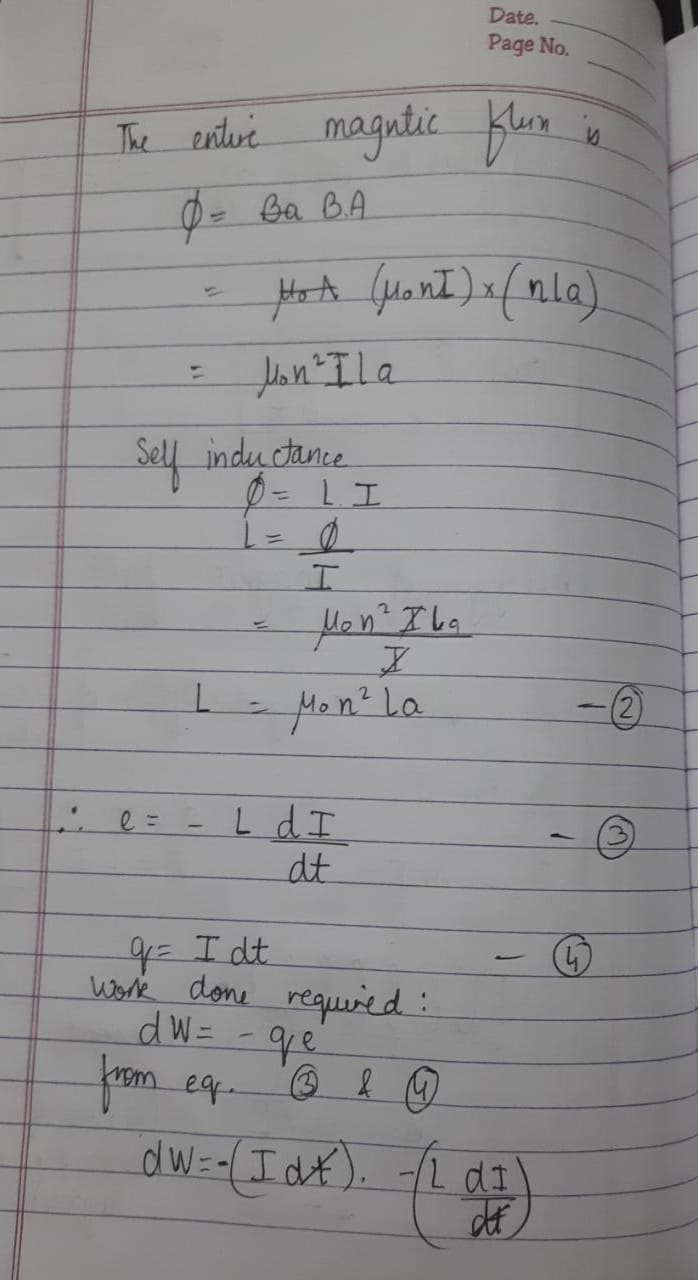 Date.
Page No.
The entire magntic flux is
ϕ = Ba B.A
= μ₀A (μ₀nI)×(nla)
= μ₀n²Ila
Self inductance
ϕ = L.I
L = ϕ/I
= μ₀n²Ila/I
L = μ₀n²la -②
∴ e = - L dI/dt - ③
q = I dt - ④
Work done required :
dW = - qe
from eq. ③ & ④
dW = -(I dt). -(L dI/dt)